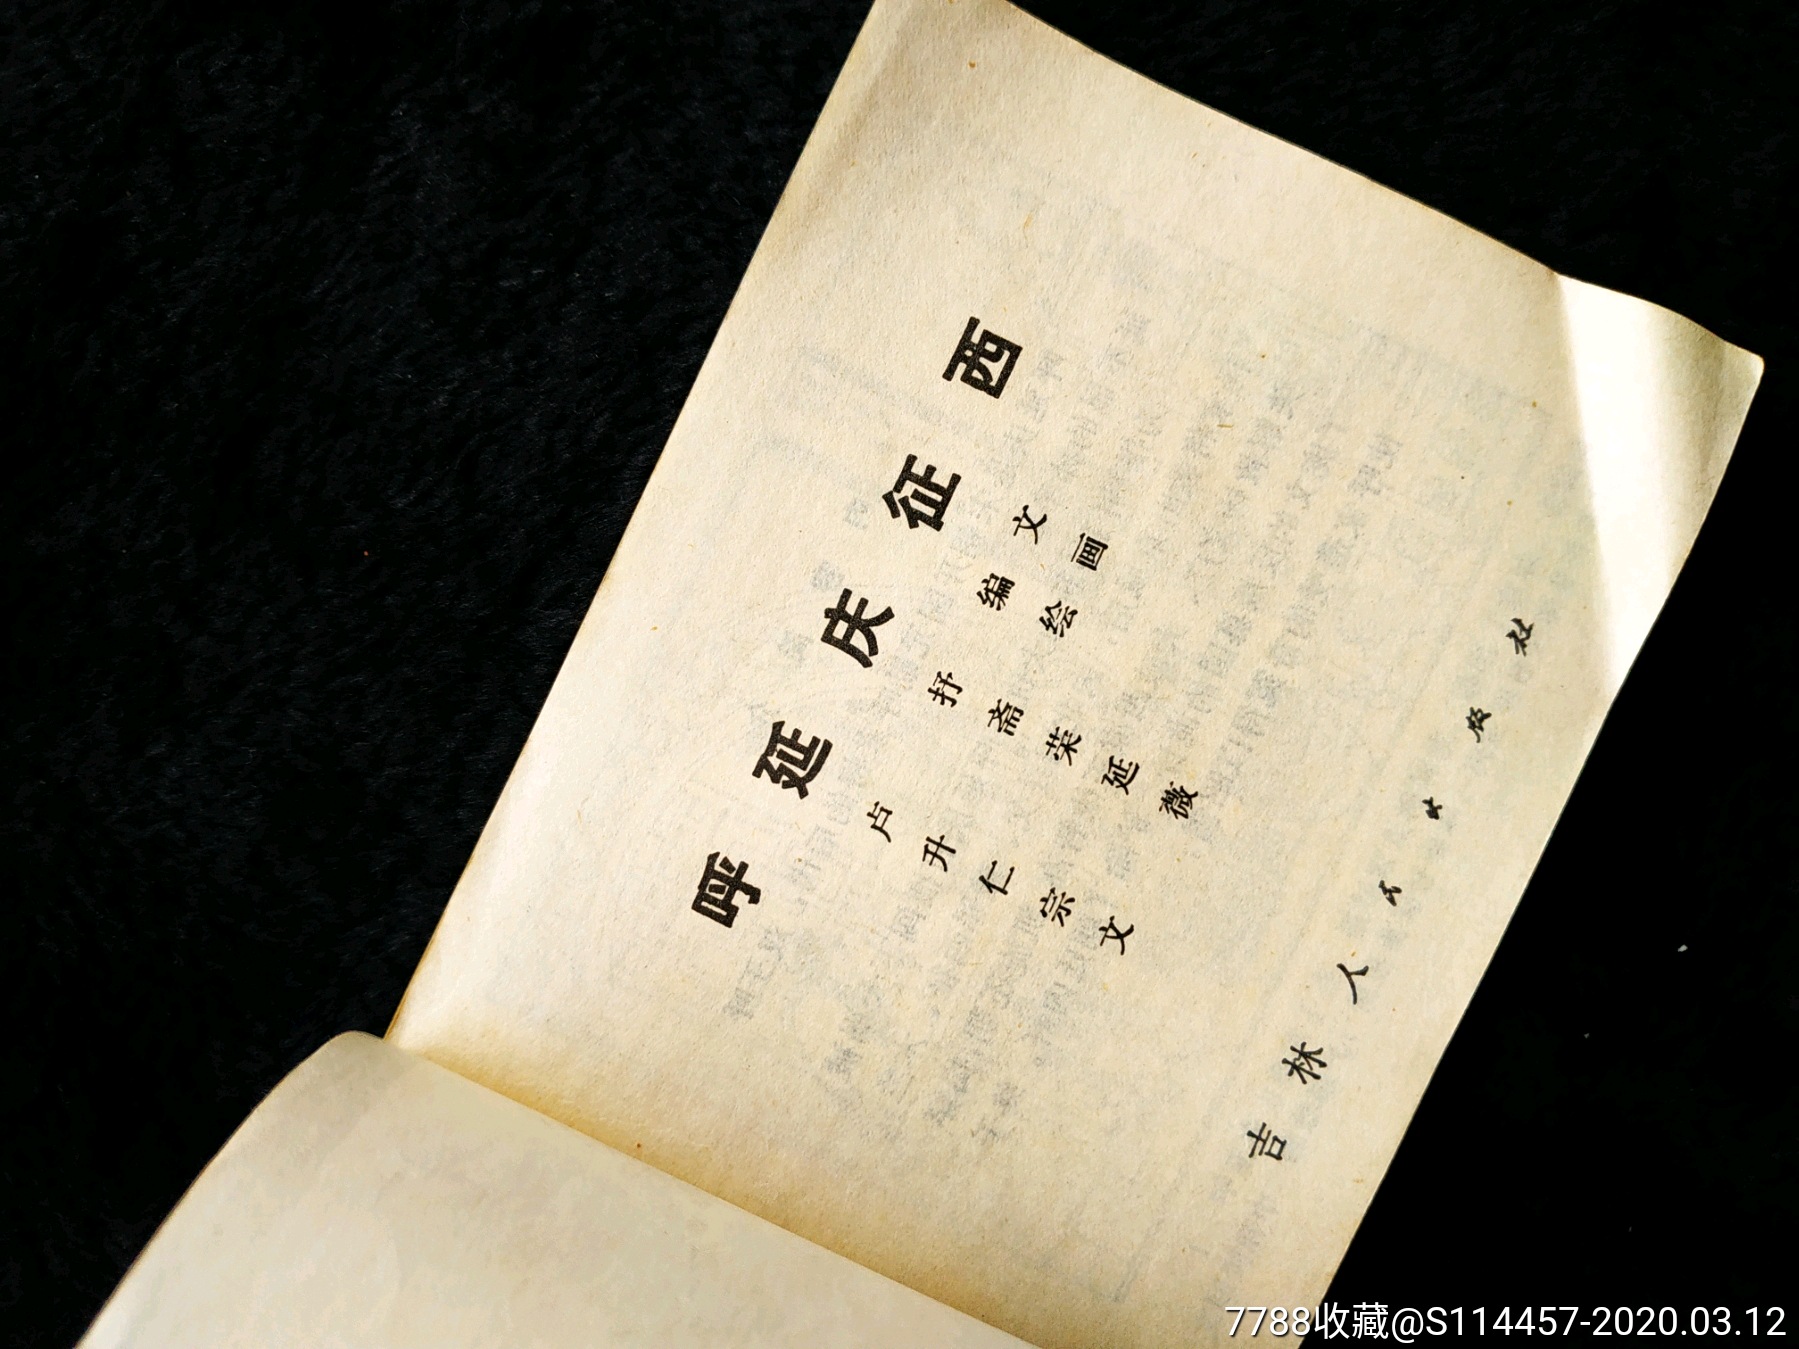 呼延庆征西
卢抒 编文
升斋 绘画
仁荣
宗延
文薇
吉林人民出版社
7788收藏@S114457-2020.03.12